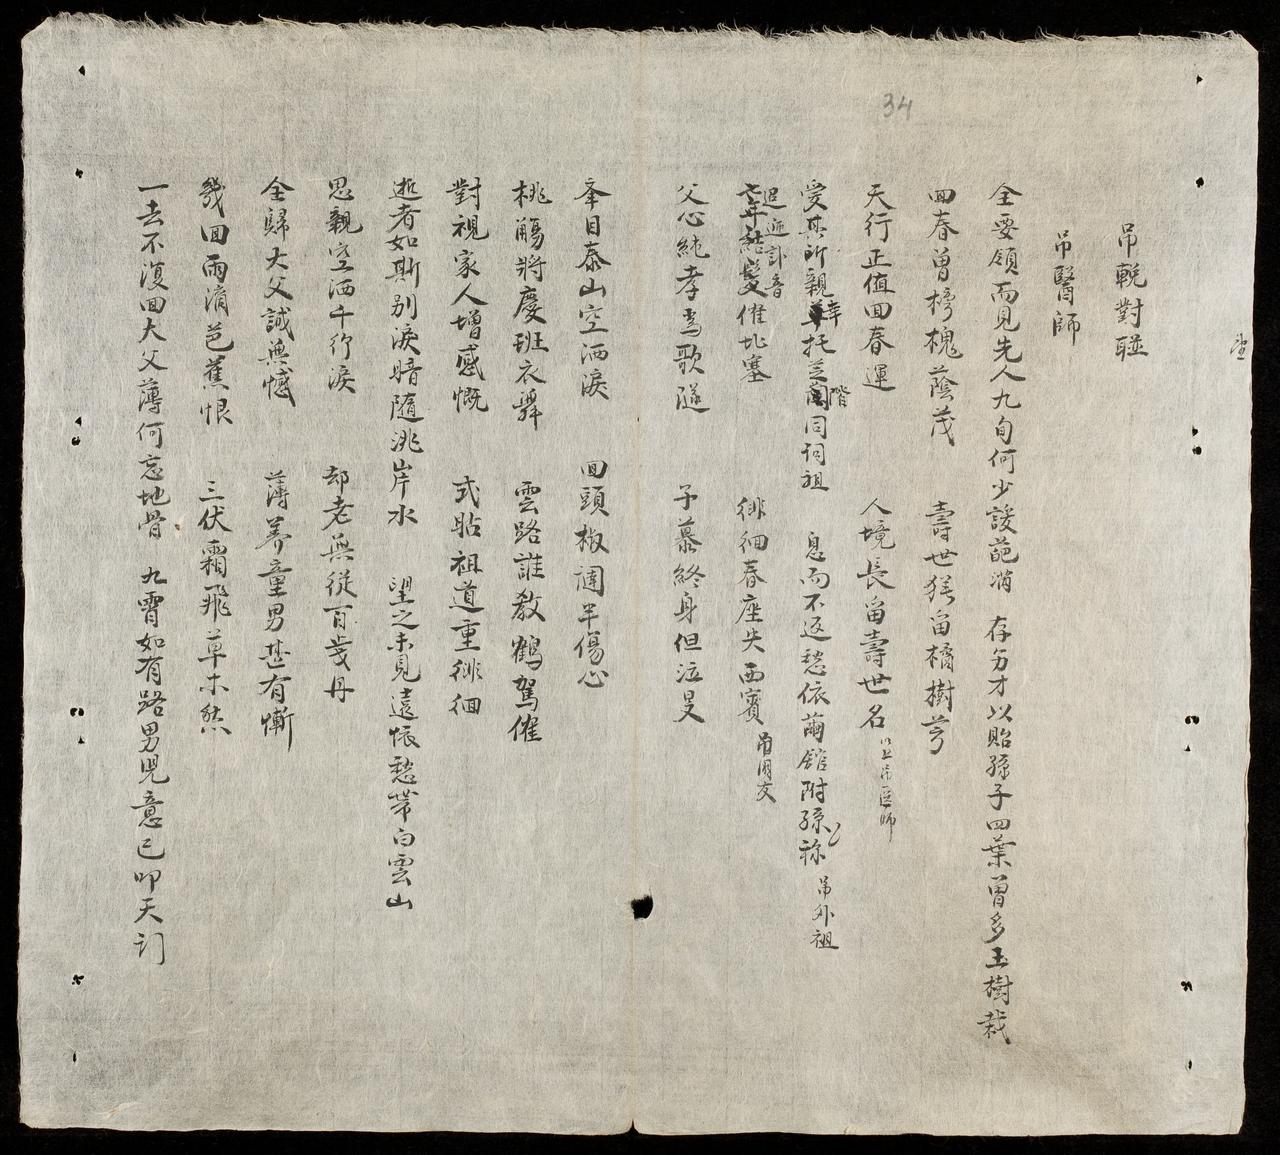 34
吊輓對聯
吊醫師
全要領而見先人九旬何少諼葩消 存方才以貽孫子四葉曾多玉樹栽
回春曾榜槐蔭茂 壽世猶留橘樹芳
天行正值回春運 人境長留壽世名 以上吊医師
受其所親幸托芝階同祠祖 息而不返愁依蘭館附孫祢 吊外祖
迢遞訃音催北塞 徘徊春座失西賓 吊朋友
父心純孝烏歌繇 予慕終身但泣旻
夆目泰山空洒淚 回頭椒運半傷心
桃觴將慶班衣舞 雲路誰教鶴駕催
對視家人增感慨 式貼祖道重徘徊
逝者如斯别淚暗隨洮岸水 望之未見遠懷愁带白雲山
思親空洒千行淚 却老無從百歲丹
全歸大父誠無憾 薄养童男甚有慚
幾回雨滴芭蕉恨 三伏霜飛草木愁
一去不復回大父薄何忘地骨 九霄如有路男児意已叩天訂